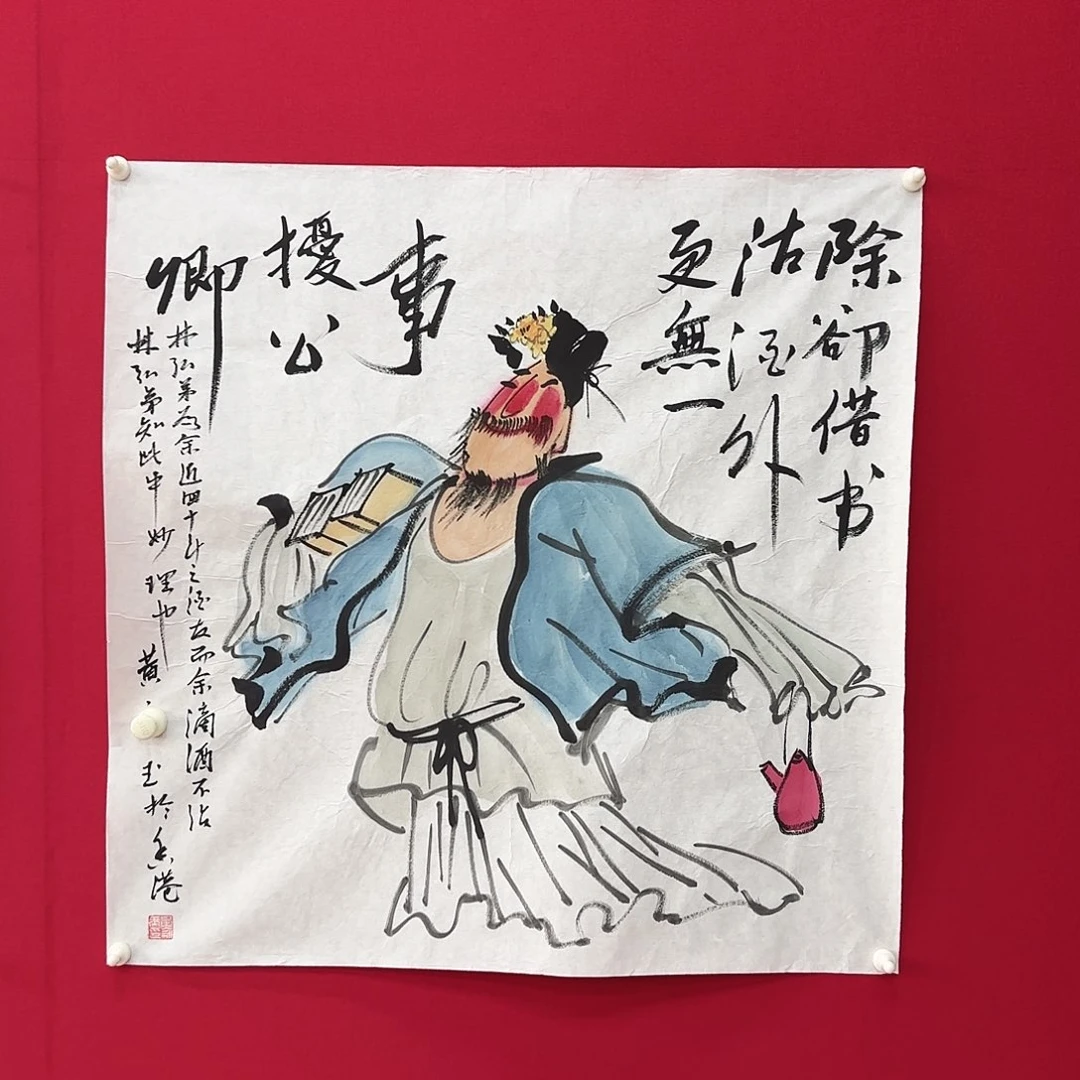 除卻借书
沽酒外
更無一
事
擾公
卿
林弘弟为余近四十年之酒友而余滴酒不沾
林弘弟知此中妙理也 黄 玉於香港